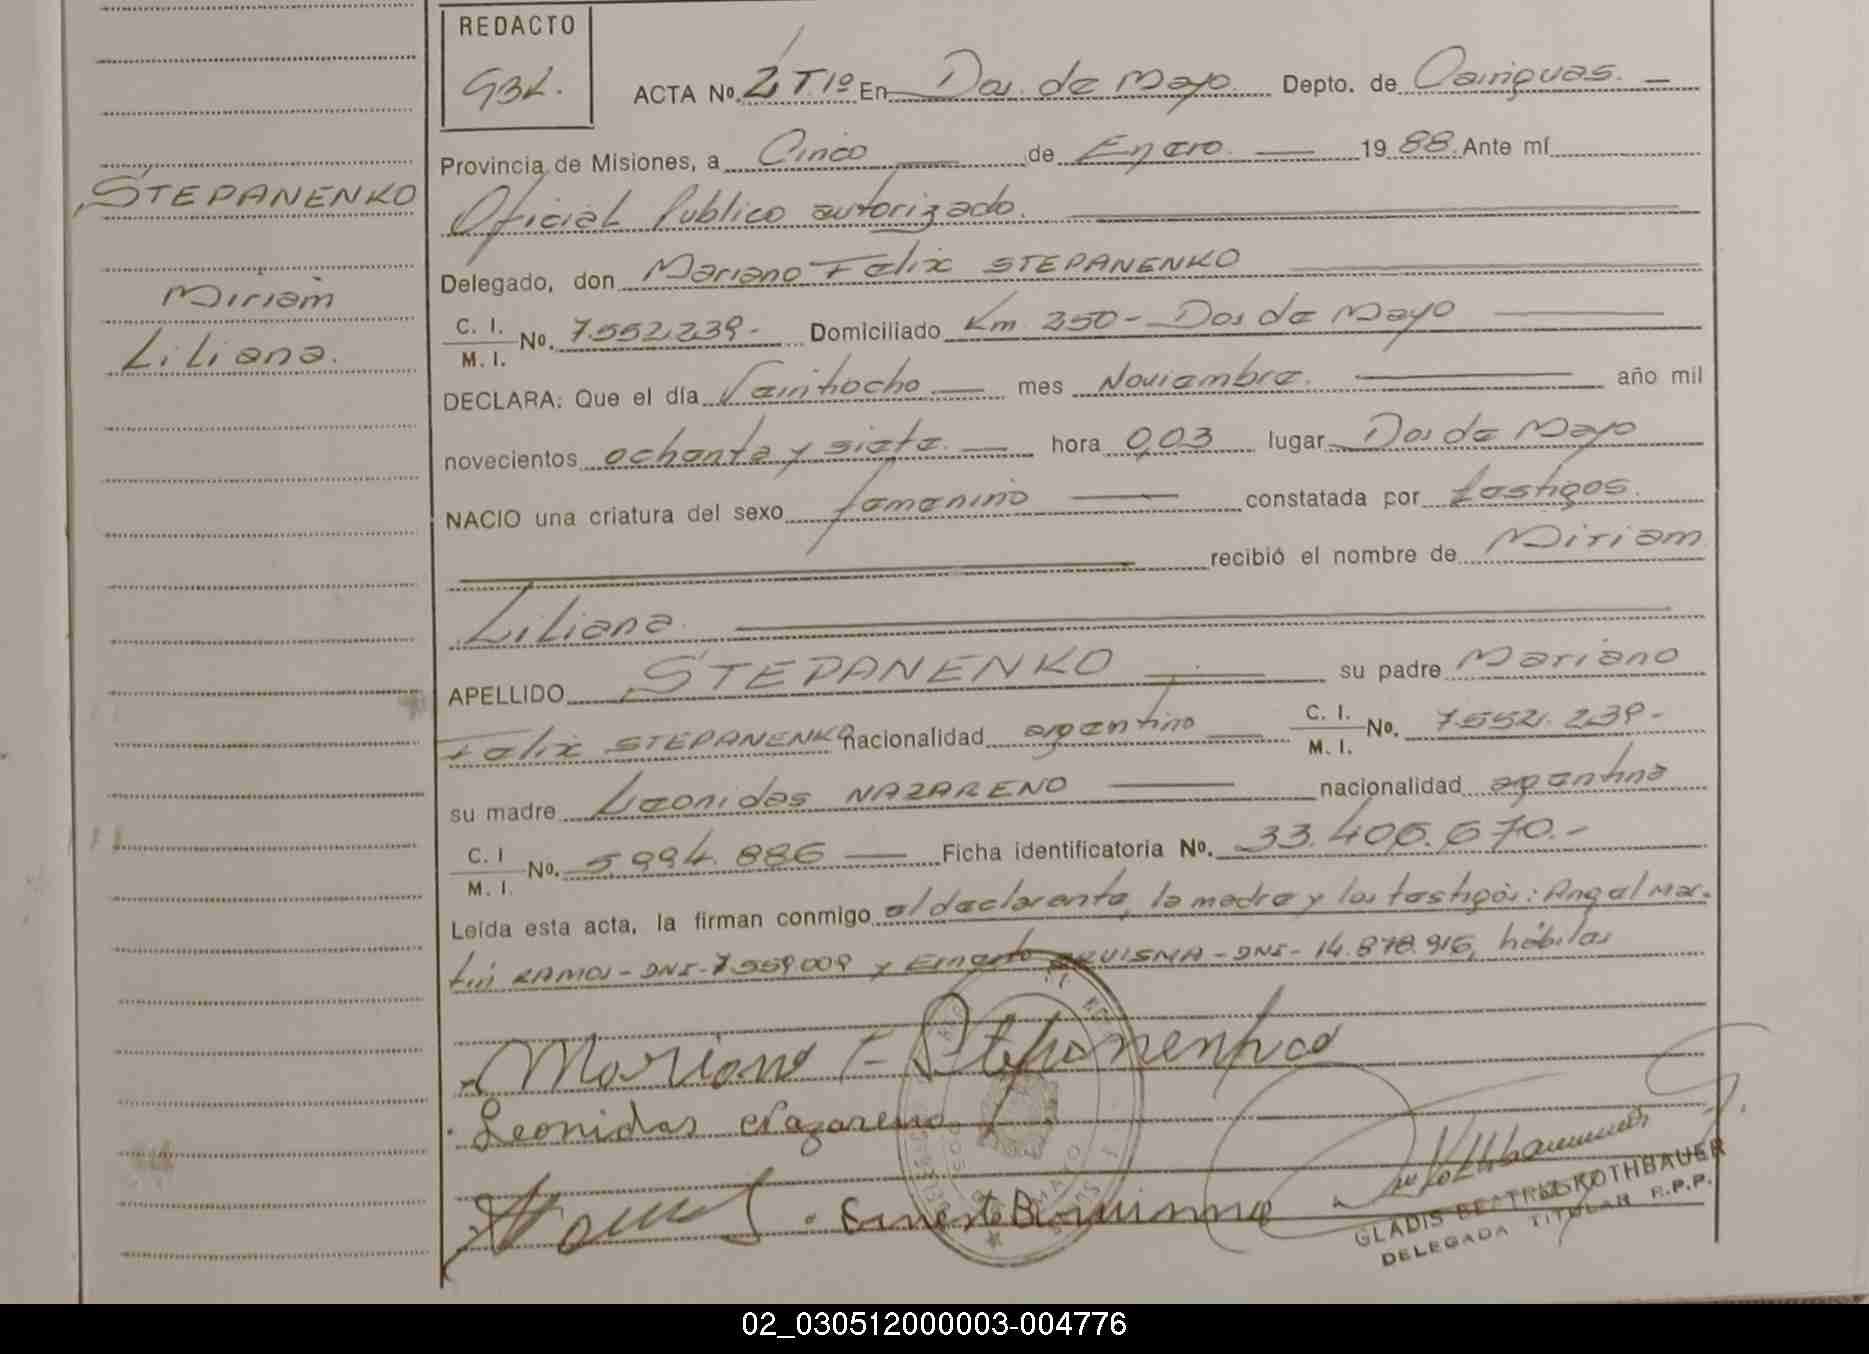 REDACTO
GBL.
ACTA No. 2 Tº 1º En Dos de Mayo Depto. de Cainguas.
Provincia de Misiones, a Cinco de Enero 19 88 Ante mí
Oficial Publico autorizado.
STEPANENKO
Delegado, don Mariano Felix STEPANENKO
Miriam
C. I. M. I. No. 7.552.239.- Domiciliado Km. 250 - Dos de Mayo
Liliana.
DECLARA: Que el día Veintiocho mes Noviembre. año mil
novecientos ochenta y siete. hora 0,03 lugar Dos de Mayo
NACIO una criatura del sexo femenino constatada por testigos.
recibió el nombre de Miriam
Liliana.
APELLIDO STEPANENKO su padre Mariano
Felix STEPANENKO nacionalidad argentino C. I. M. I. No. 7.552.239.-
su madre Leonidas NAZARENO nacionalidad argentina
C. I M. I. No. 5.994.886 Ficha identificatoria No. 33.406.670.-
Leída esta acta, la firman conmigo el declarante, la madre y los testigos: Angel Mar-
tin RAMOS - DNI - 7.559.009 y Ernesto - DNI - 14.878.916, hábiles
Mariano F Stepanenko
Leonidas Nazareno
Ernesto
GLADIS BEATRIZ ROTHBAUER
DELEGADA TITULAR R.P.P.
02_030512000003-004776